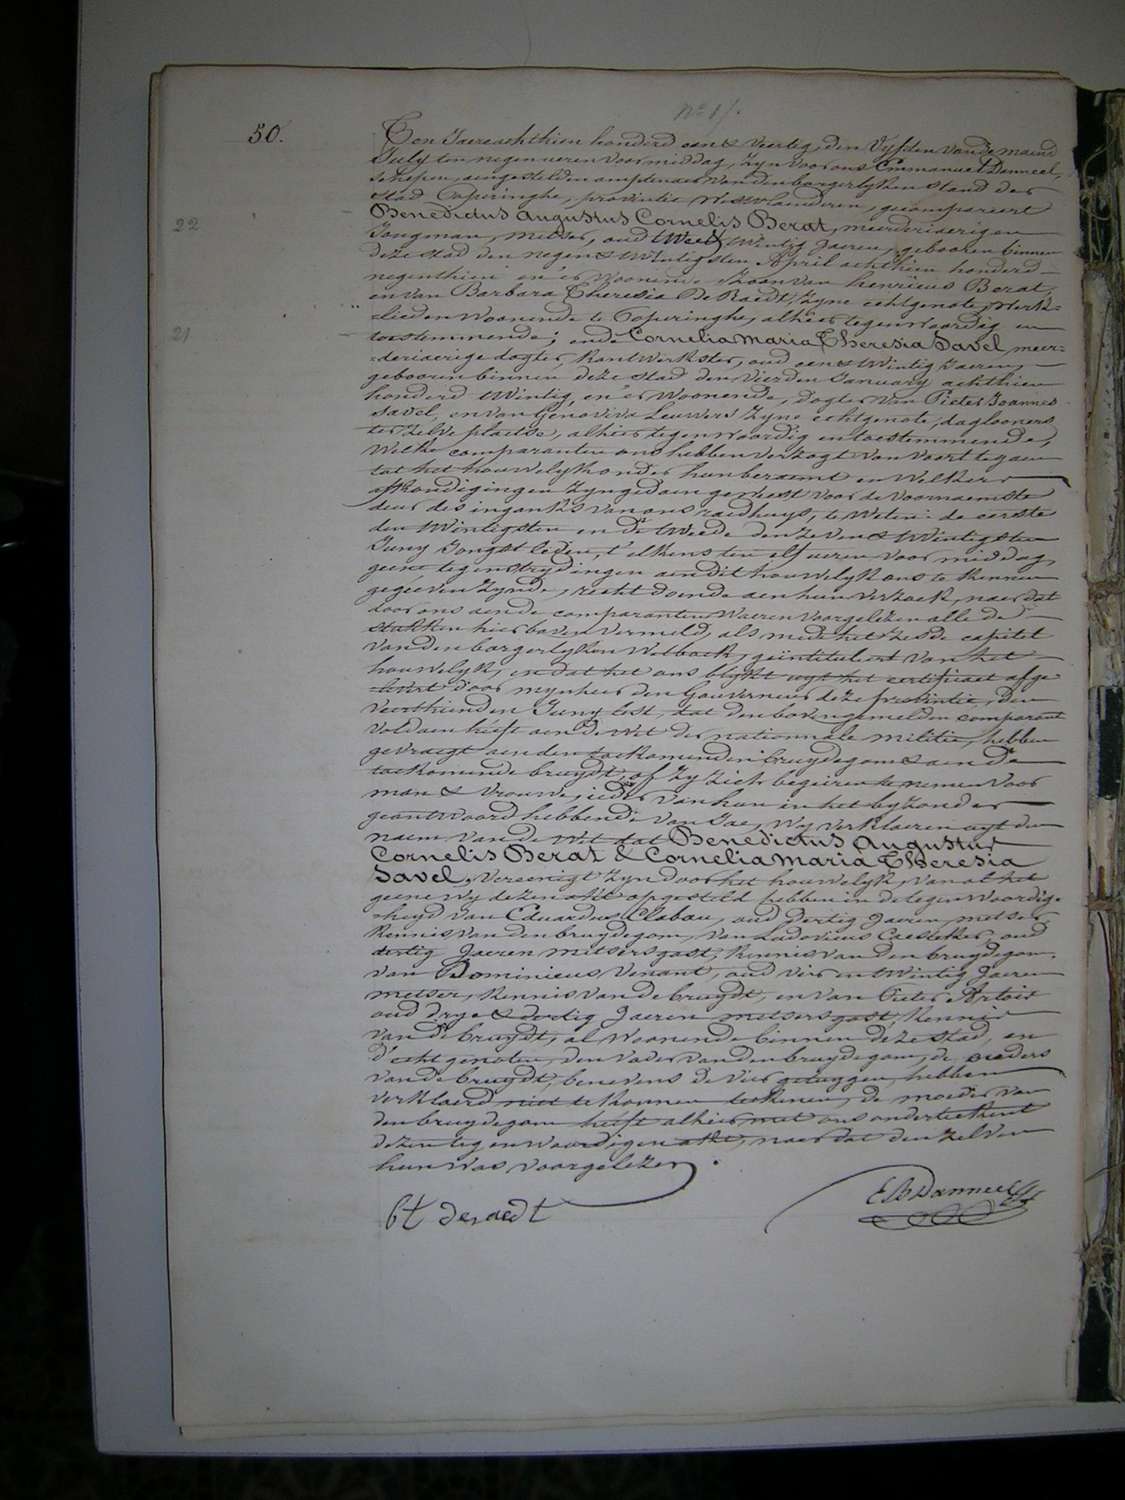 50.
Nº 1/.
Ten Jaere achthien honderd een & veertig, den Vyfden van de maend
July ten negen ueren voormiddag, zyn voor ons Emmanuel Danneel,
schepen, aengestelden amptenaer van den borgerlyken stand der
stad Poperinghe, provintie Westvlaenderen, gecompareert
Benedictus Augustus Cornelis Berat, meerderjaerigen
22
Jongman, metser, oud twee & twintig Jaeren, gebooren binnen
deze stad den negen & twintigsten April achthien honderd
negenthien en er woonende, Zoon van henricus Berat,
en van Barbara Theresia De Raedt, Zyne echtgenote, werk=
=lieden woonende te Poperinghe, alhier tegenwoordig en
21
toestemmende; ende Cornelia Maria Theresia Savel, meer=
=derjaerige dogter, kantwerkster, oud een & twintig Jaeren,
gebooren binnen deze stad den vierden January achthien
honderd twintig, en er woonende, dogter van Pieter Joannes
Savel, en van Genoviva Leuwers Zyne echtgenote, daglooners
ter zelve plaetse, alhier tegenwoordig en toestemmende,
Welke comparanten ons hebben verzogt van voort te gaen
tot het houwelyk onder hun beraemt en welkers
afkondigingen zyn gedaen geweest voor de voornaemste
deur des ingankx van ons raedhuys, te weten: de eerste
den twintigsten en de tweede den zeven & twintigsten
Juny Jongst leden, t'elkens ten elf ueren voor middag,
geene tegenstrydingen aen dit houwelyk ons te kennen
gegeeven zynde, recht doende aen hun verzoek, naer dat
door ons aen de comparanten waeren voorgelezen alle de
stukken hier boven vermeld, als mede het zesde capitel
van den borgerlyken Wetboek, geintituleert van het
houwelyk, en dat het ons blykt uyt het certificaet afge
=levert door mynheer den Gouverneur dezer provintie, den
veerthienden Juny lest, dat den bovengemelden comparant
voldaen heeft aen de Wet der nationnale militie, hebben
gevraegt aen den toekomenden bruydegom & aen de
toekomende bruydt, of zy zich begeeren te nemen voor
man & vrouwe, ieder van hun in het byzonder
geantwoord hebbende van Jae, Wy verklaeren uyt de
naem van de Wet dat Benedictus Augustus
Cornelis Berat & Cornelia Maria Theresia
Savel, vereenigt zyn door het houwelyk, van al het
geene wy dezen akt opgesteld hebben in de tegenwoordig=
=heyd van Eduardus Clabau, oud dertig Jaeren, metser
kennis van den bruydegom, van Ludovicus Caesteker, oud
dertig Jaeren metsersgast, kennis van den bruydegom,
van Dominicus Venant, oud vier en twintig Jaeren
metser, kennis van de bruydt, en van Pieter Artois
oud drye & dertig Jaeren metsersgast, kennis
van de bruydt, al woonende binnen deze stad, en
d'echtgenoten, den vader van den bruydegom, de ouders
van de bruydt, benevens de vier getuygen, hebben
verklaerd niet te konnen teekenen, de moeder van
den bruydegom heeft alhier met ons onderteekent
dezen tegenwoordigen akt, naer dat den zelven
hun was voorgelezen.
bt deraedt
E B Danneel